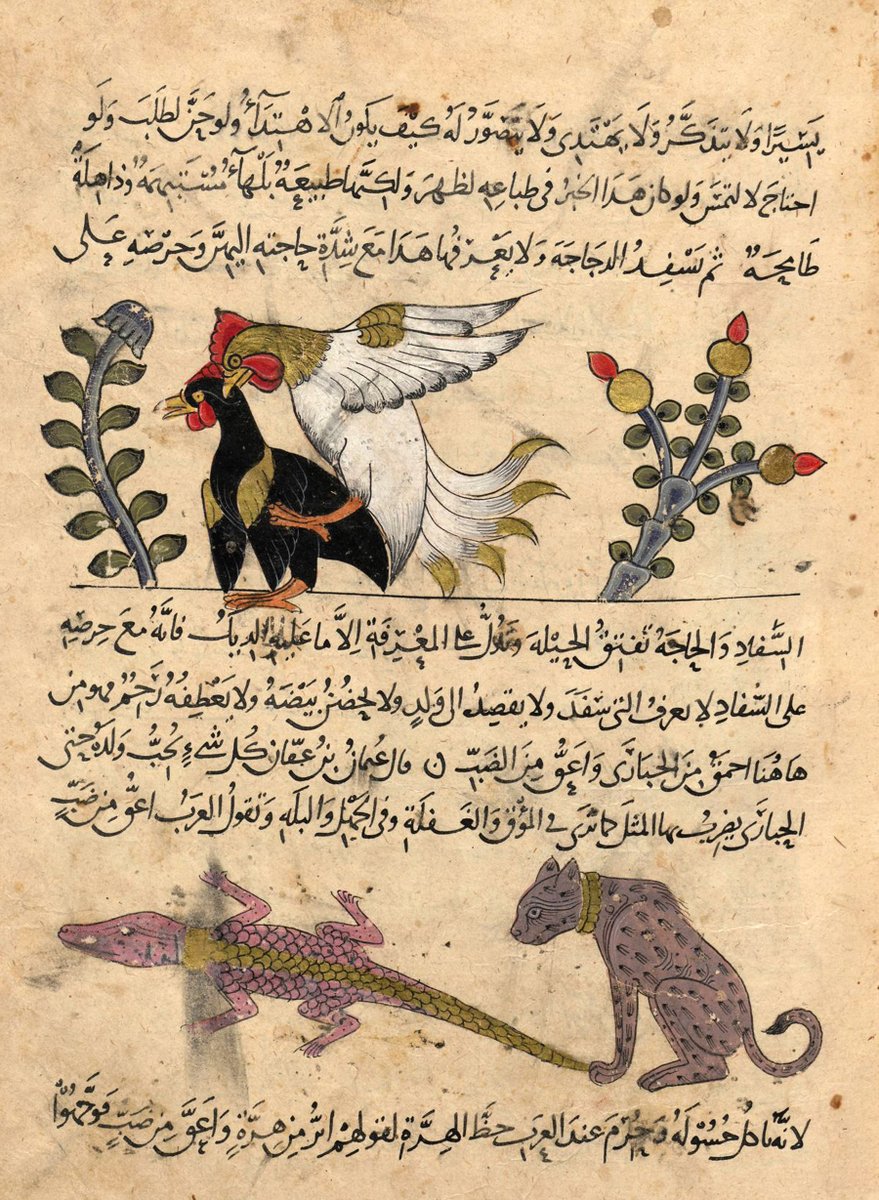 يَسِيرًا وَلَا يتذَكَّرُ وَلَا يَهْتَدِى وَلَا يَتَصَوَّرُ لَهُ كَيْفَ يَكُونُ الاهْتِدَآءُ وَلَو حَنَّ لَطَلَبَ وَلَو
احتاجَ لالتمسَ وَلو كان هَذَا الخيرُ فى طباعِه لظهرَ وَلكنَّها طبيعَةٌ بَلْهآءُ مُسْتَبْهِمَةٌ وَذَاهِلَةٌ
طَامِحَةٌ ثم يَسْفِدُ الدجَاجَةَ وَلا يَعْرِفُها هَذَا مَعَ شِدَّةِ حاجته اليهنَّ وَحِرْصِهِ عَلى
السِّفادِ وَالحاجَةُ تفتقُ الحِيْلةَ وَتدُلُّ عَلَى المعْرِفَةِ اِلاَّ ما عليْهِ الديك فَانّهُ مَعَ حِرصِهِ
على السّفادِ لا يعرفُ التى يسْفدَ ولا يقصِدُ الى وَلدٍ ولا يحْضُنُ بَيْضَهُ ولا يَعْطِفُهُ رَحمٌ فهو من
هَا هُنَا احمَقُ مِنَ الحبارَى وَاعقُّ مِنَ الضَبّ ن قال عُثمانُ بنُ عفّان كُل شىءٍ يُحبُّ وَلَدَهُ حتى
الحبارَى يضربُ بها المثلَ كما تَرَى فى المؤق وَالغَفلَةِ وفى الجهْلِ وَالبلَهِ وَتقولُ العَربُ اعقُّ مِنْ ضَبٍّ
لانّهُ ياكل حُسُولَهُ عندَ العرب حظَّ الهِرَّة لقولهِمْ ابَرُّ مِنْ هِرَّةٍ وَاعَقُّ مِنْ ضَبٍّ فوجَّهُوا